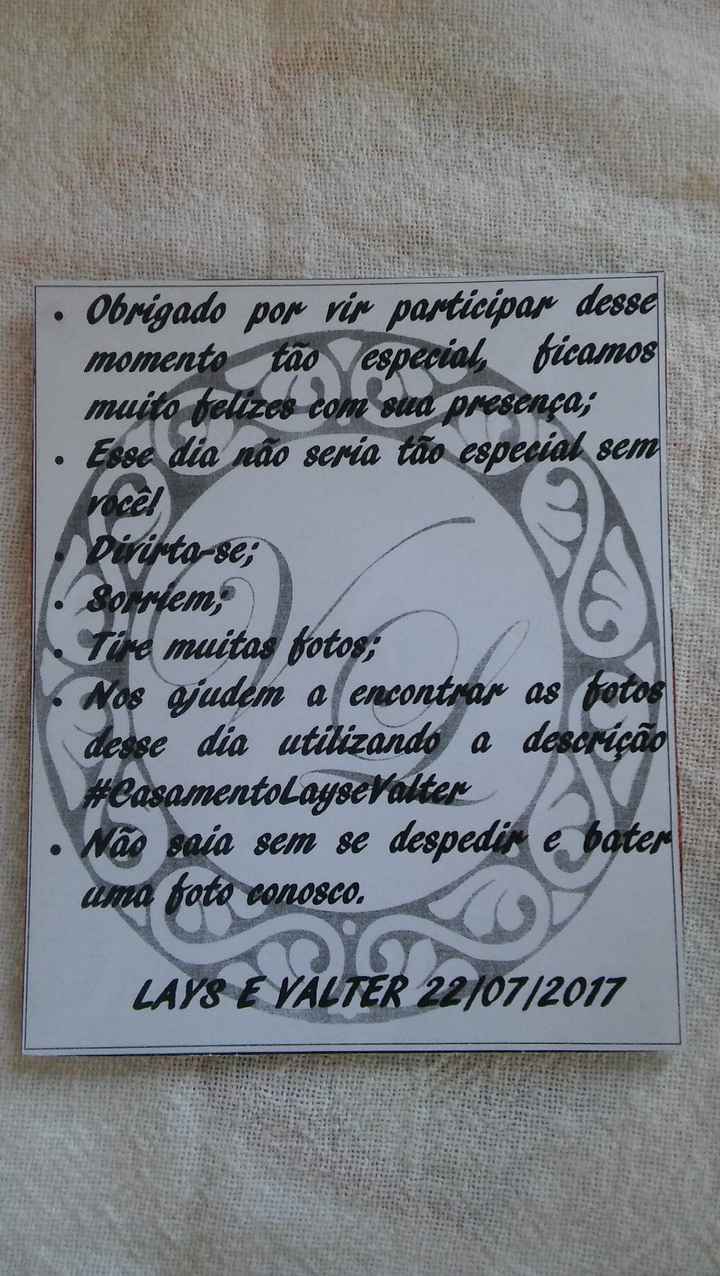 • Obrigado por vir participar desse
momento tão especial, ficamos
muito felizes com sua presença;
• Esse dia não seria tão especial sem
você!
• Divirta-se;
• Sorriem;
• Tire muitas fotos;
• Nos ajudem a encontrar as fotos
desse dia utilizando a descrição
#CasamentoLayseValter
• Não saia sem se despedir e bater
uma foto conosco.
VL
LAYS E VALTER 22/07/2017